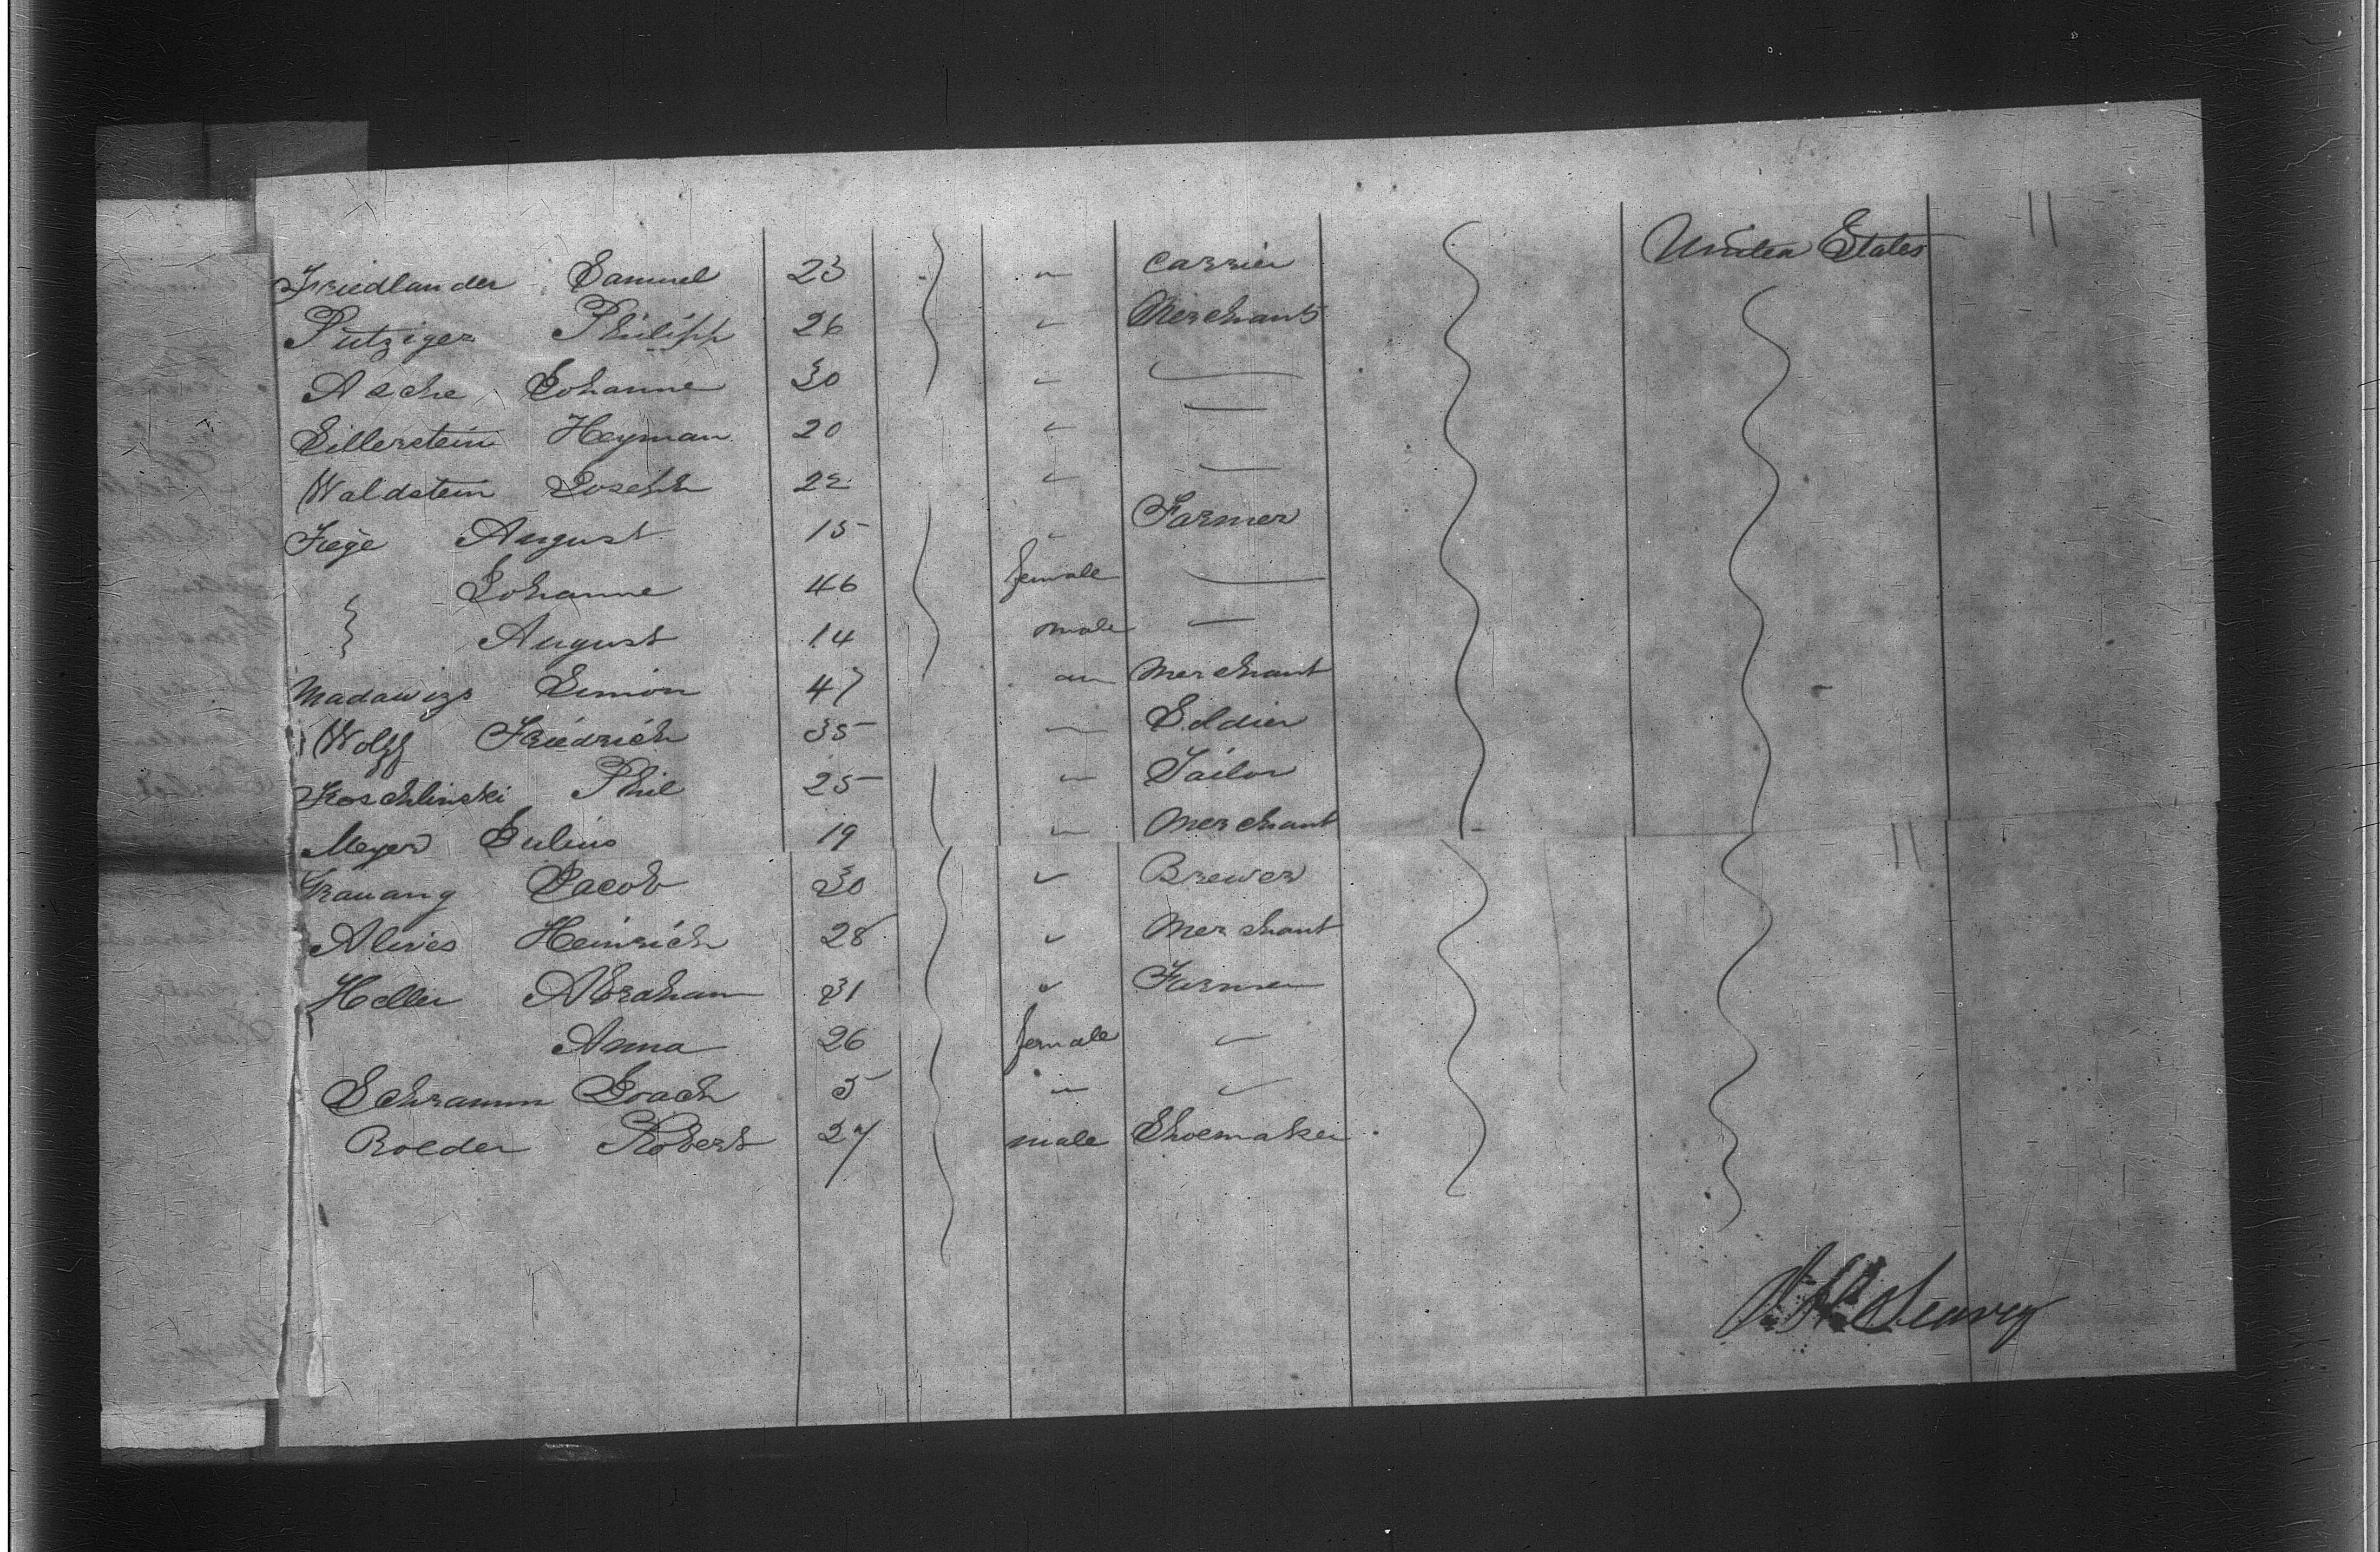 Friedlander Samuel 23 " Carrier United States 11
Putziger Philipp 26 " Merchant
Asche Johanne 30 " —
Sillerstein Heyman 20 " —
Waldstein Joseph 22 " —
Frege August 15 " Farmer
Johanne 46 female —
August 14 male —
Madawizs Simon 47 " Merchant
Wolff Friedrich 35 " Soldier
Koschlinski Phil 25 " Tailor
Meyer Julius 19 " Merchant 11
Grauang Jacob 30 " Brewer
Alwes Heinrich 28 " Merchant
Heller Abraham 31 " Farmer
Anna 26 female "
Schramm 5 " "
Roeder Robert 27 male Shoemaker